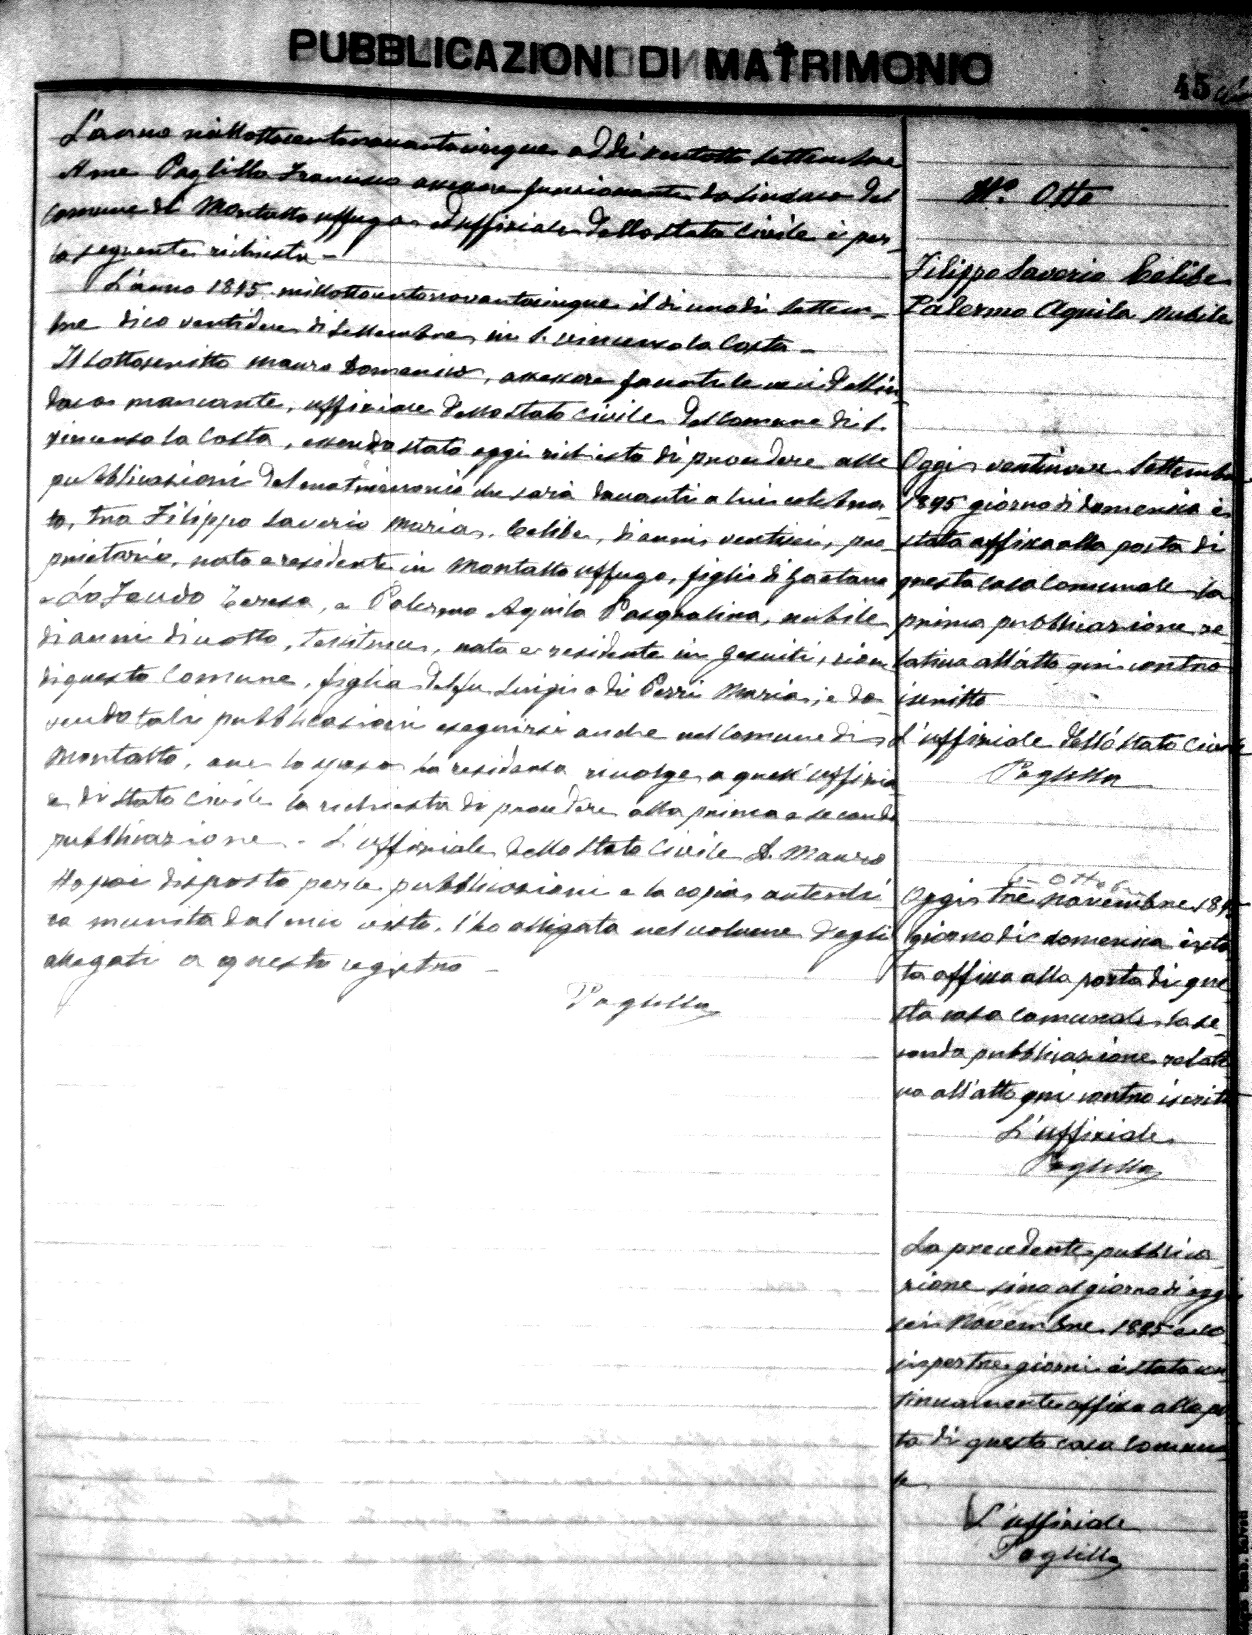 PUBBLICAZIONI DI MATRIMONIO
45
L'anno millottocentonovantacinque addì ventotto Settembre
A me Paglilla Francesco assessore funzionante da Sindaco del
Comune di Montalto Uffugo ed uffiziale dello Stato Civile è per-
la seguente richiesta -
L'anno 1895 millottocentonovantacinque il dì uno di Settem-
bre dico ventidue di Settembre in S. Vincenzo la Costa -
Il sottoscritto Mauro Domenico, assessore facente le veci del Sin-
daco mancante, uffiziale dello Stato Civile del Comune di S.
Vincenzo la Costa, essendo stato oggi richiesto di procedere alle
pubblicazioni del matrimonio che sarà davanti a lui celebra-
to, tra Filippo Saverio Maria, Celibe, di anni ventisei, pro-
prietario, nato e residente in Montalto Uffugo, figlio di Gaetano
e Lo Feudo Teresa, e Palermo Aquila Pasqualina, nubile
di anni diciotto, tessitrice, nata e residente in Gesuiti, rione
di questo Comune, figlia del fu Luigi e di Perri Maria; e do-
vendo tali pubblicazioni eseguirsi anche nel Comune di
Montalto, ove lo sposo ha residenza rivolge a quell'Uffizia
le di Stato Civile la richiesta di procedere alla prima e seconda
pubblicazione - L'uffiziale dello Stato Civile D. Mauro
Ho poi disposto per le pubblicazioni e la copia autenti
ca munita dal mio visto, l'ho alligata nel volume degli
allegati a questo registro -
Paglilla
N.º Otto
Filippo Saverio Celibe
Palermo Aquila nubile
Oggi ventinove Settembre
1895 giorno di domenica è
stata affissa alla porta di
questa casa Comunale la
prima pubblicazione re
lativa all'atto qui contro
iscritto
L'uffiziale dello Stato Civile
Paglilla
6 - Ottobre
Oggi tre Novembre 1895
giorno di domenica è sta
ta affissa alla porta di que
sta casa Comunale la se-
conda pubblicazione relati
va all'atto qui contro iscritto
L'uffiziale
Paglilla
La precedente pubblica
zione sino al giorno di oggi
sei Novembre 1895
per tre giorni è stata con
tinuamente affissa alla por
ta di questa casa Comuna
le
L'uffiziale
Paglilla